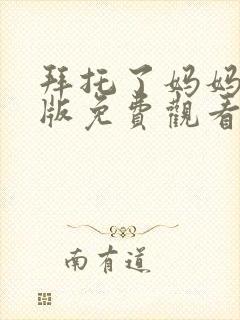 拜托了妈妈
版免費觀看
南有道